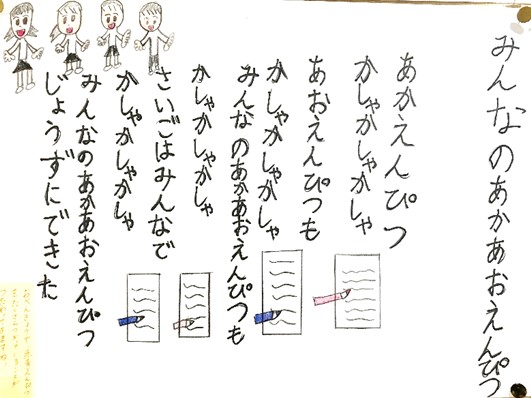 みんなのあかあおえんぴつ
あかえんぴつ
かしゃかしゃかしゃ
あおえんぴつも
かしゃかしゃかしゃ
みんなのあかあおえんぴつも
かしゃかしゃかしゃ
さいごはみんなで
かしゃかしゃかしゃ
みんなのあかあおえんぴつ
じょうずにできた